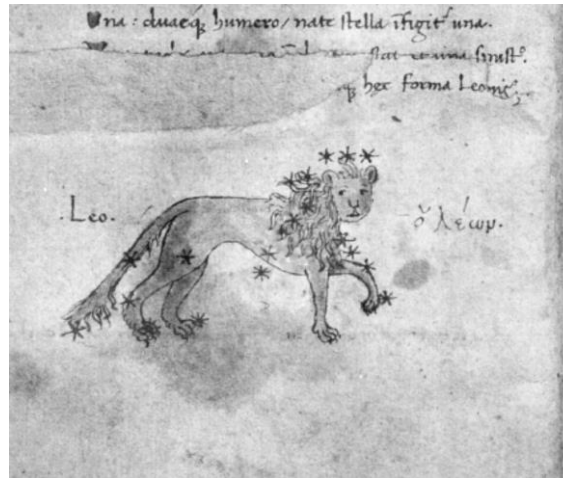 Una : duaeq́ humero / nate stella ĩfigit᷑ una.
stat et una sinist᷑.
hec forma Leonis,
.Leo.
ὁ λέων.